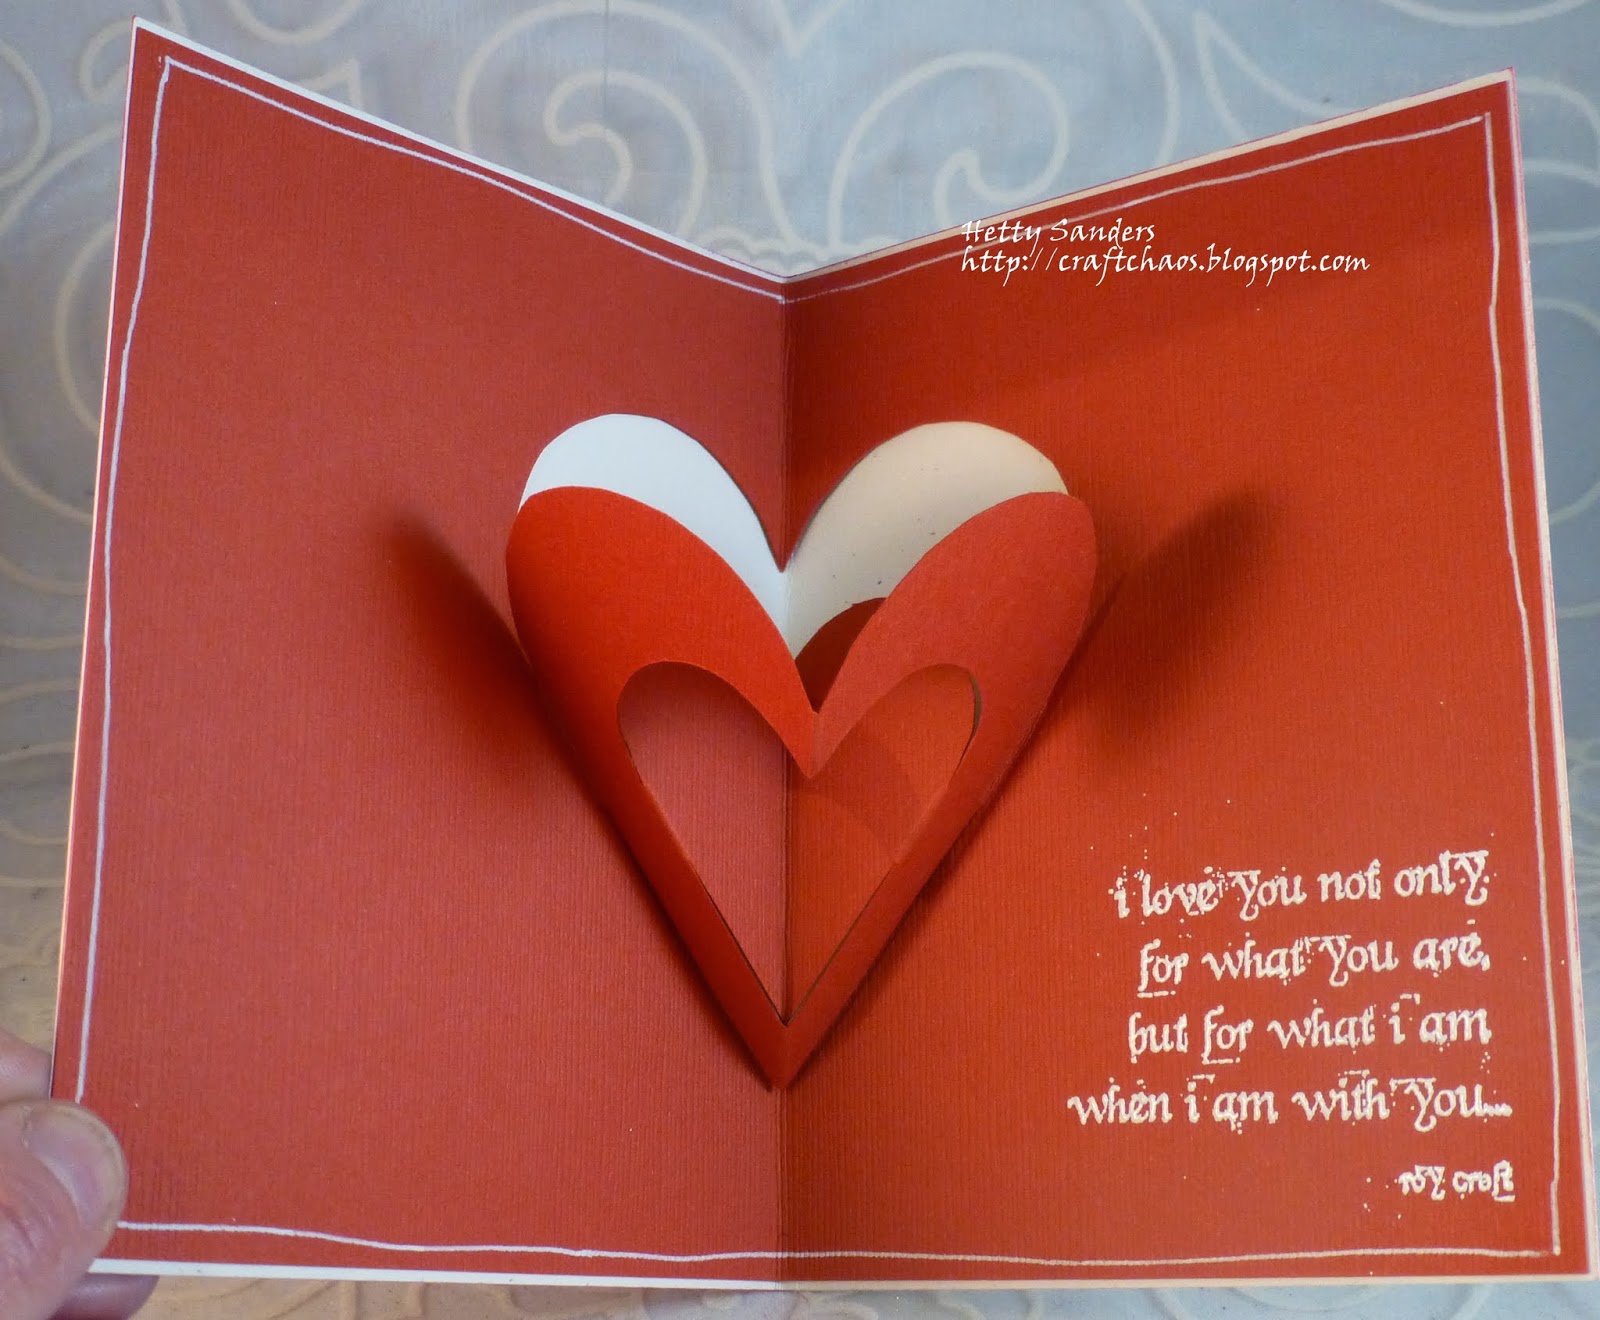 Hetty Sanders
http://craftchaos.blogspot.com
i love you not only
for what you are,
but for what i am
when i am with you...
roy croft